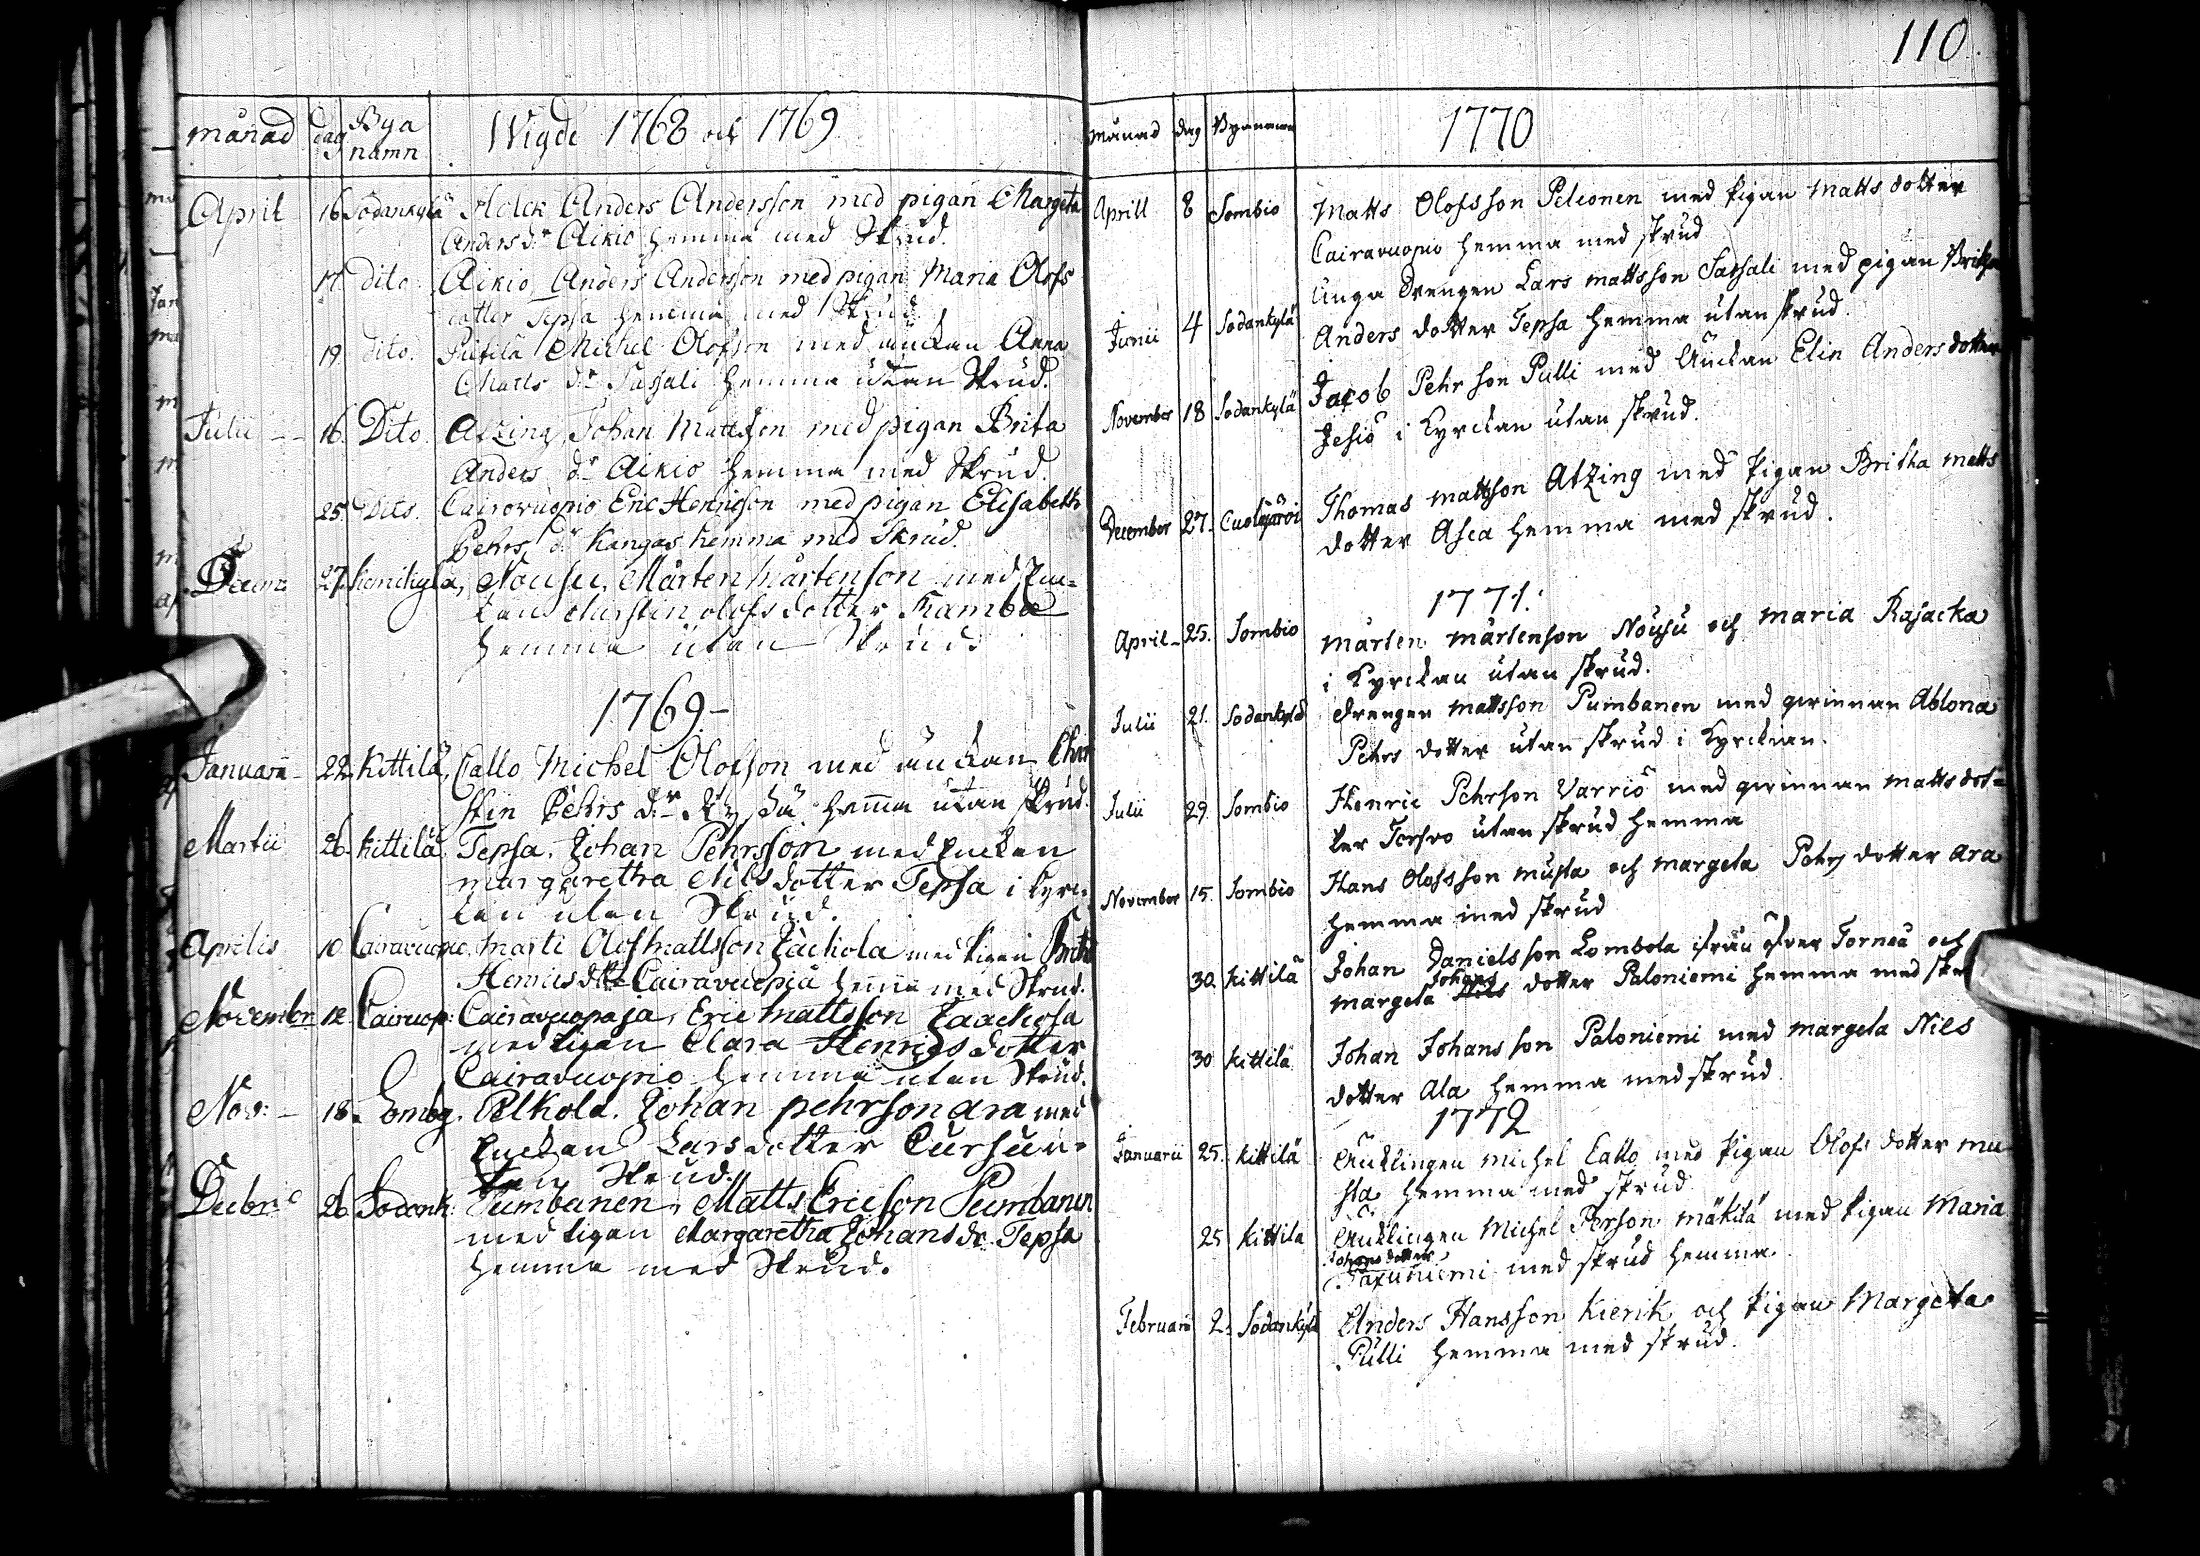 månad dag Bya namn Wigde 1768 och 1769
April 16 Sodankylä Holck Anders Andersson med pigan Margeta
Anders dr Aikio hemma med Skrud.
17. dito Aikio Anders Anderson med pigan Maria Olofs
dotter Tepsa hemma med Skrud.
19. dito. Michel Olofson med änckan Anna
Matts dr Sassali hemma utan Skrud.
Julii 16. Dito. Atzing Johan Mattsson med pigan Brita
Anders dr Aikio hemma med Skrud.
25. Dito. Cairovuopio Eric Henricson med pigan Elisabeth
Pehrs dr Kangas hemma med Skrud.
27. Kemikylä, Nousu, Mårten Mårtenson med En=
kan Kirstin Olofs dotter
hemma utan Skrud.
1769.
Januarii 22. Kittilä, Callo Michel Olofson med änckan
stin Pehrs dr hemma utan skrud.
Martii 26. Kittilä, Tepsa, Johan Pehrsson med Enckan
margaretha Nils dotter Tepsa i Kyrc=
kan utan Skrud.
Aprilis 10 Cairavuopio. Marti Olof Mattsson Jäckola med pigan Brita
Henrics dottr Cairavuopia hemma med Skrud.
Novembr 12 Cairuop: Cairavuopaja, Eric Mattsson Jaackola
med pigan Clara Henrics dotter
Cairavuopio hemma utan Skrud.
Nov: 18. Pelkola. Johan Pehrson Ara med
Enckan Lars dotter Cursu u=
tan Skrud.
Decbris 26. Sodank: Pumbanen, Matts Ericson Pumbanen
med pigan Margaretha Johans dr Tepsa
hemma med Skrud.
110.
Månad dag Byanamn 1770
Aprill 8 Sombio Matts Olofsson Peleonen med pigan Matts dotter
Cairavuopio hemma med skrud
Unga Drengen Lars Mattsson Sassali med pigan Britha
Junii 4 Sodankylä Anders dotter Tepsa hemma utan skrud.
Jacob Pehrson Pulli med Änckan Elin Anders dotter
November 18 Sodankylä Jesiö i Kyrckan utan skrud.
December 27. Cuolajärvi Thomas Mattsson Atzing med pigan Britha Matts
dotter Asca hemma med skrud.
1771.
April 25. Sombio Mårten Mårtenson Nousu och Maria Rajacka
i Kyrckan utan skrud.
Julii 21. Sodankylä Drengen Mattsson Pumbanen med qvinnan Ablona
Pehrs dotter utan skrud i Kyrckan.
Julii 29. Sombio Henric Pehrson Varriö med qvinnan Matts dot=
ter Torfvo utan skrud hemma
November 15. Sombio Hans Olofsson Musta och Margeta Pehrs dotter Ara
hemma med skrud
30. Kittilä Johan Danielsson Lombola ifrån öfver Torneå och
Margeta Johans dotter Paloniemi hemma med
30 Kittilä Johan Johansson Paloniemi med Margeta Nils
dotter Ala hemma med skrud
1772
Januarii 25. Kittilä Ancklingen Michel Callo med pigan Olofs dotter mu
sta hemma med skrud
25 Kittila Ancklingen Michel Person Mäkitä med pigan Maria
Johans dotter med skrud hemma.
Februarii 2. Sodankylä Anders Hansson Kierik och pigan Margeta
Pulli hemma med skrud.